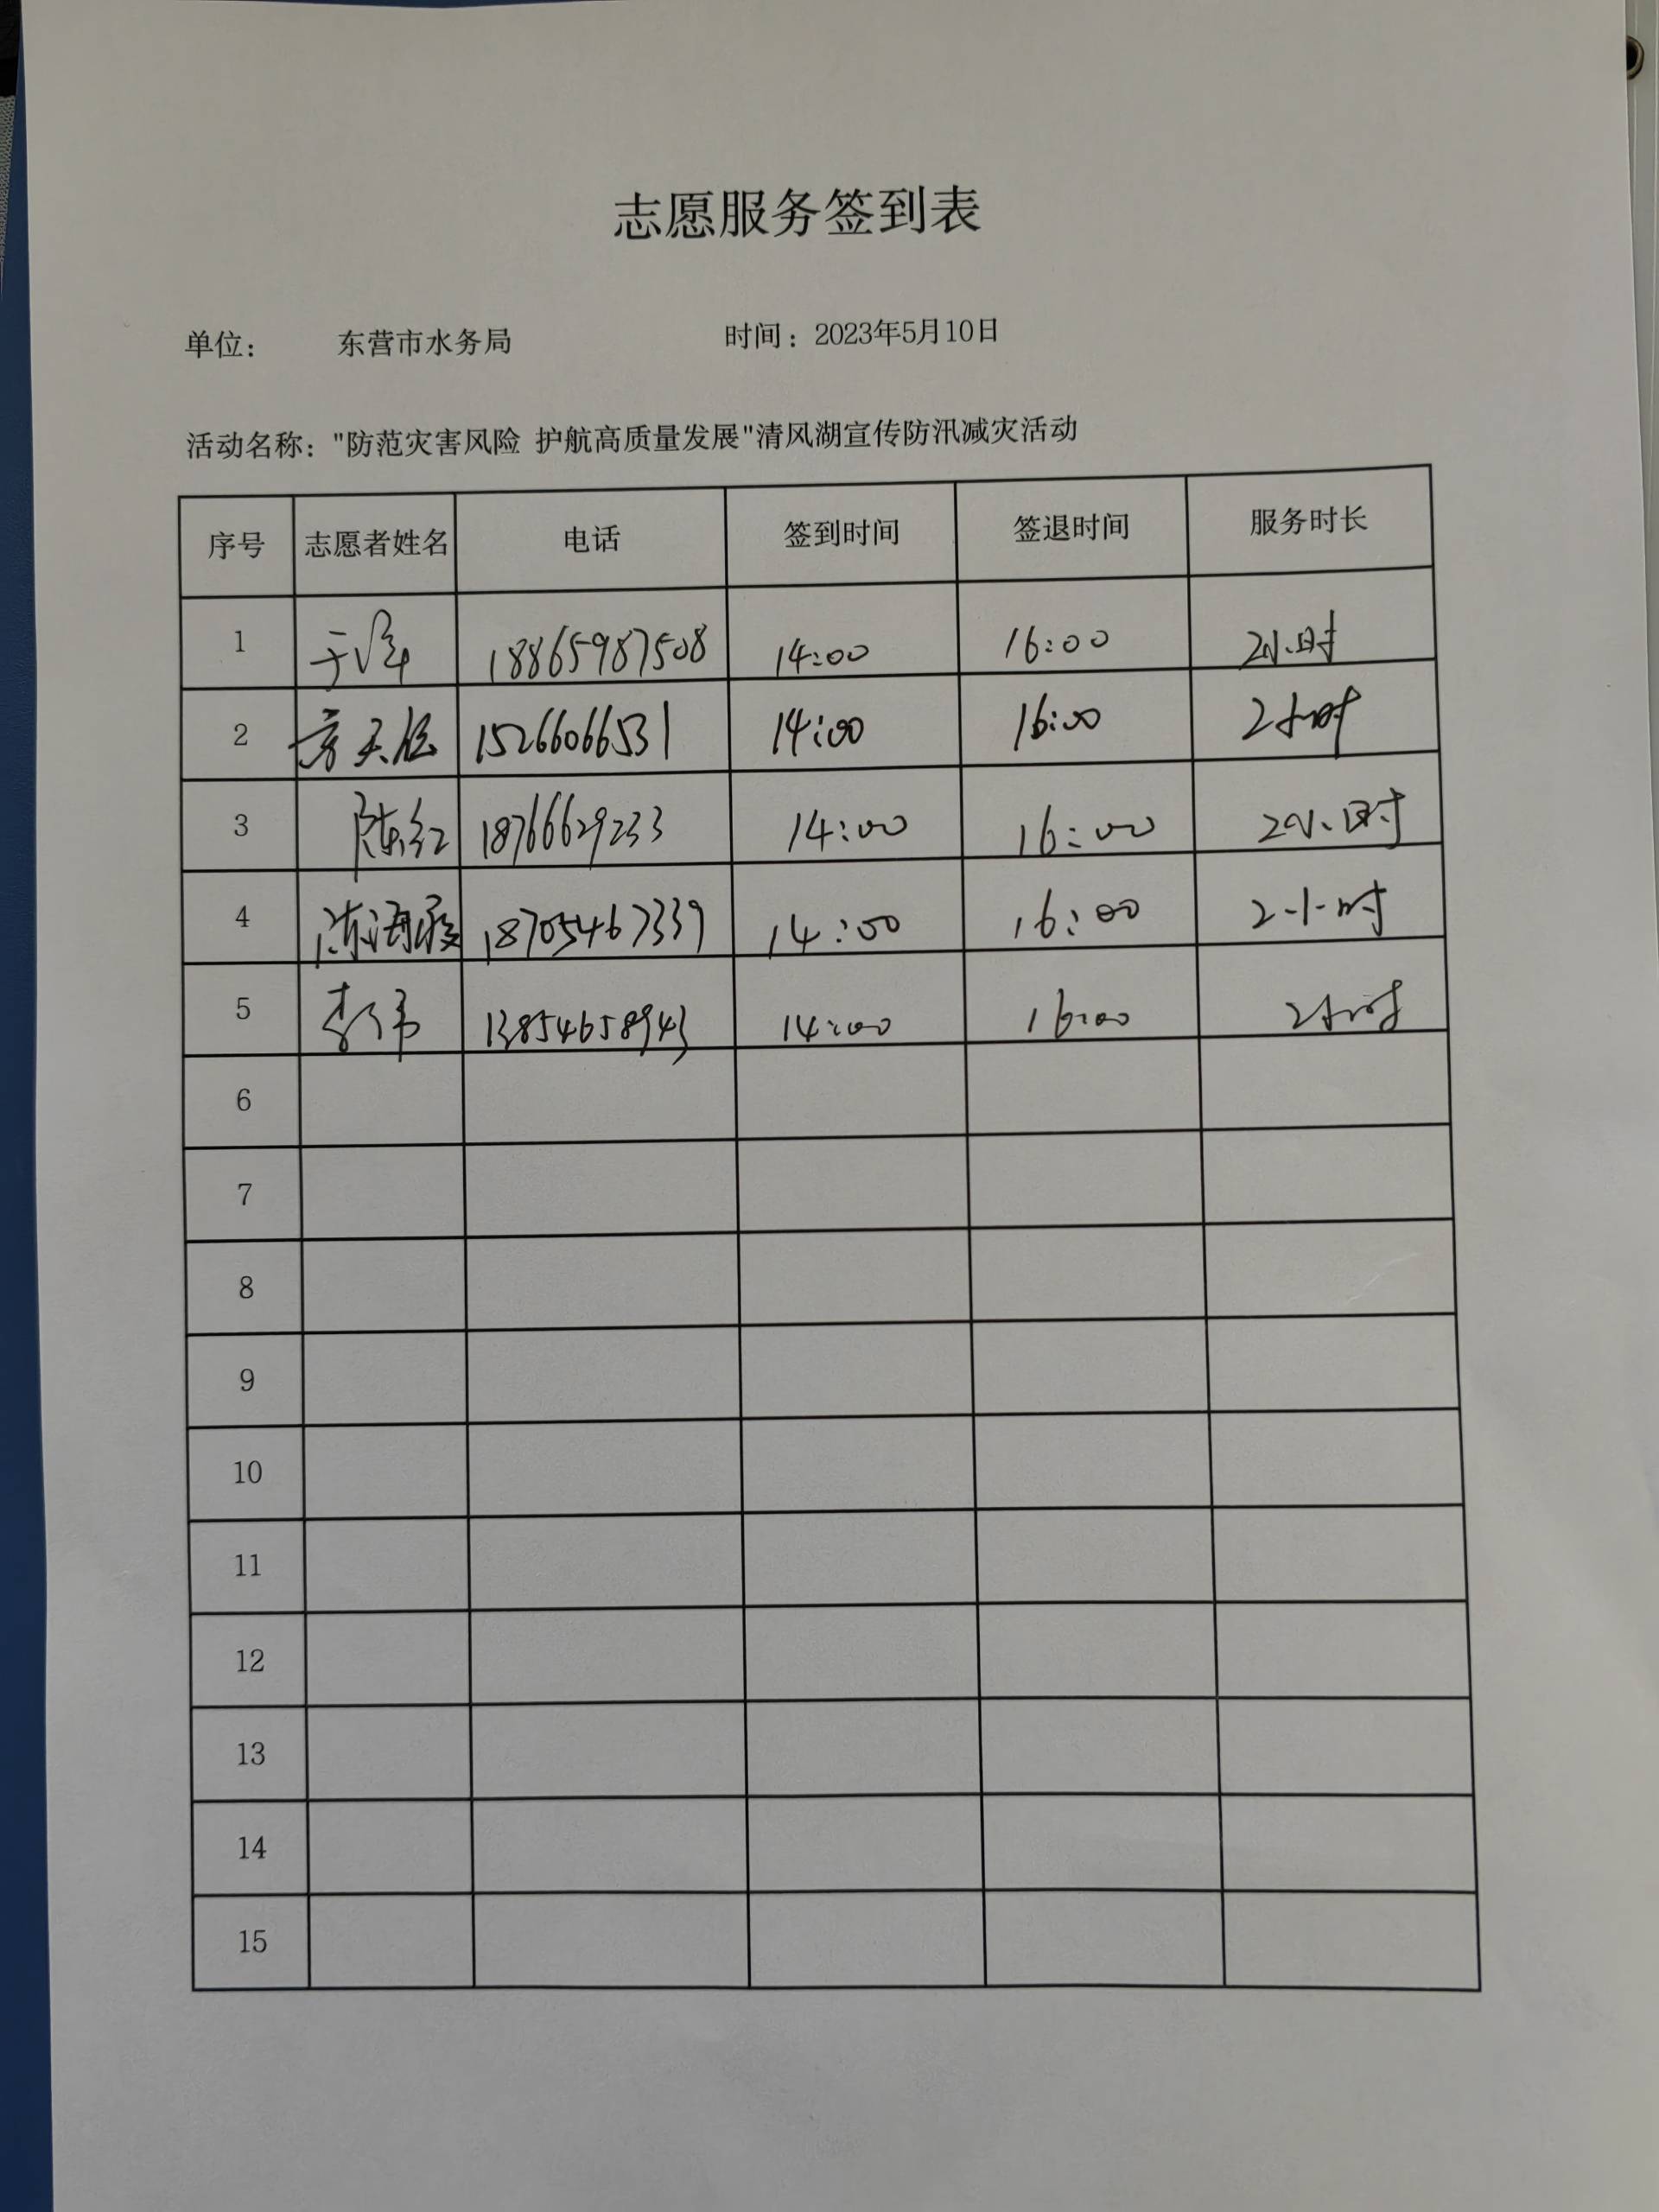 志愿服务签到表
单位： 东营市水务局 时间：2023年5月10日
活动名称："防范灾害风险 护航高质量发展"清风湖宣传防汛减灾活动
序号 志愿者姓名 电话 签到时间 签退时间 服务时长
1 于 18865987508 14:00 16:00 2小时
2 15266066531 14:00 16:00 2小时
3 陈红 18766629233 14:00 16:00 2小时
4 陈海霞 18705467339 14:00 16:00 2小时
5 李伟 13854658943 14:00 16:00 2小时
6
7
8
9
10
11
12
13
14
15